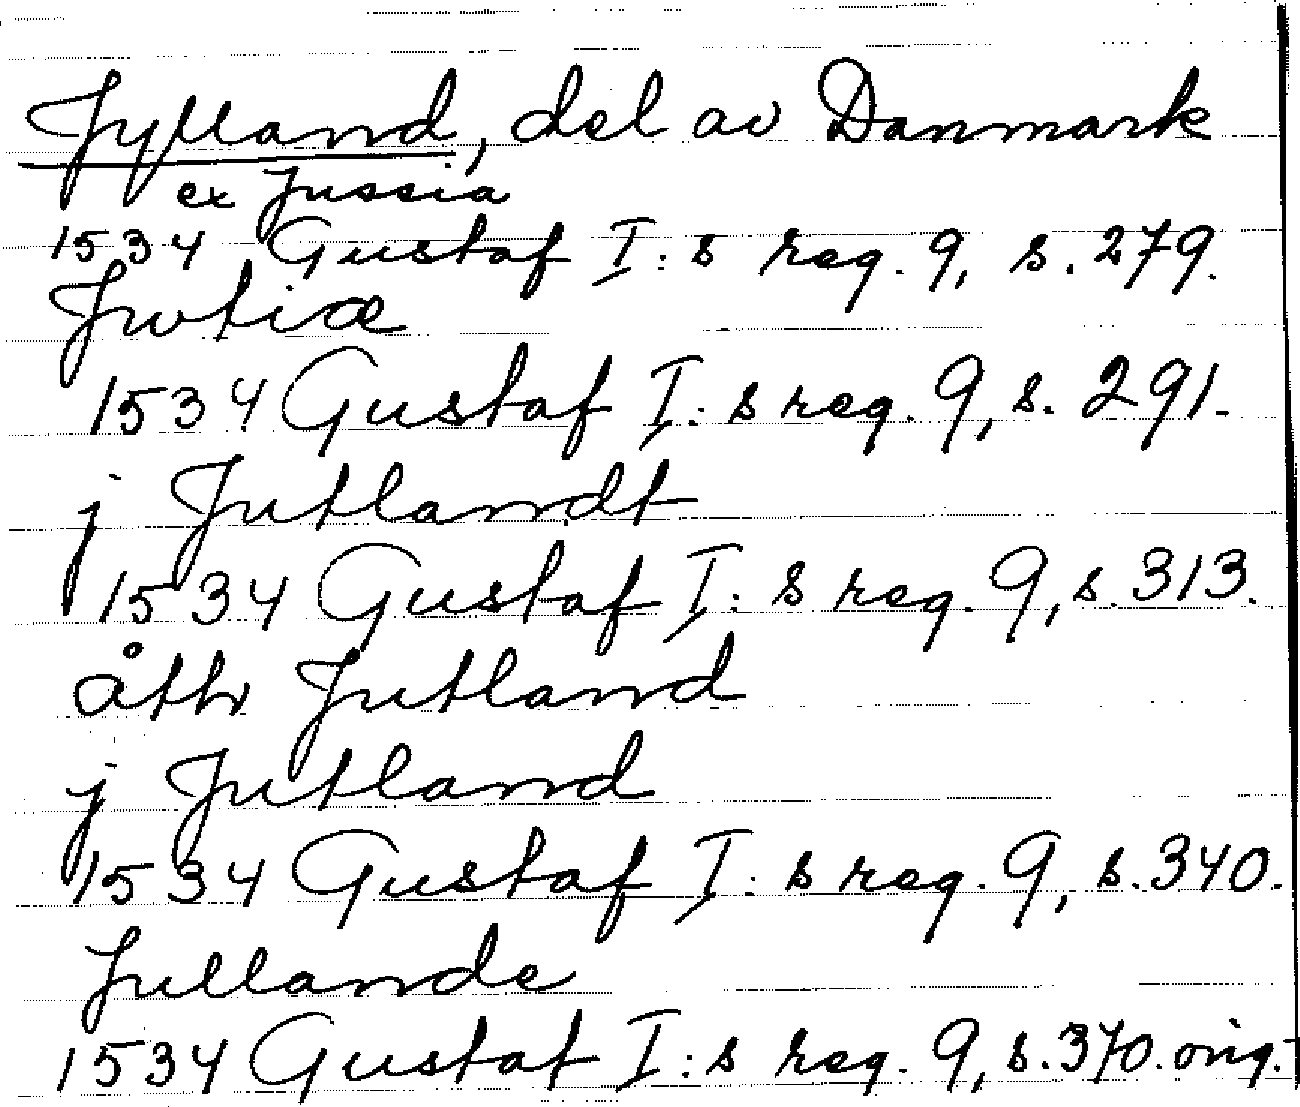 Jylland, del av Danmark
ex Jussia
1534 Gustaf I:s reg. 9, s. 279.
Jwtiæ
1534 Gustaf I:s reg. 9, s. 291.
j Jutlandt
1534 Gustaf I:s reg. 9, s. 313.
åth Jutland
j Jutland
1534 Gustaf I:s reg. 9, s. 340.
Jullande
1534 Gustaf I:s reg. 9, s. 370. orig.